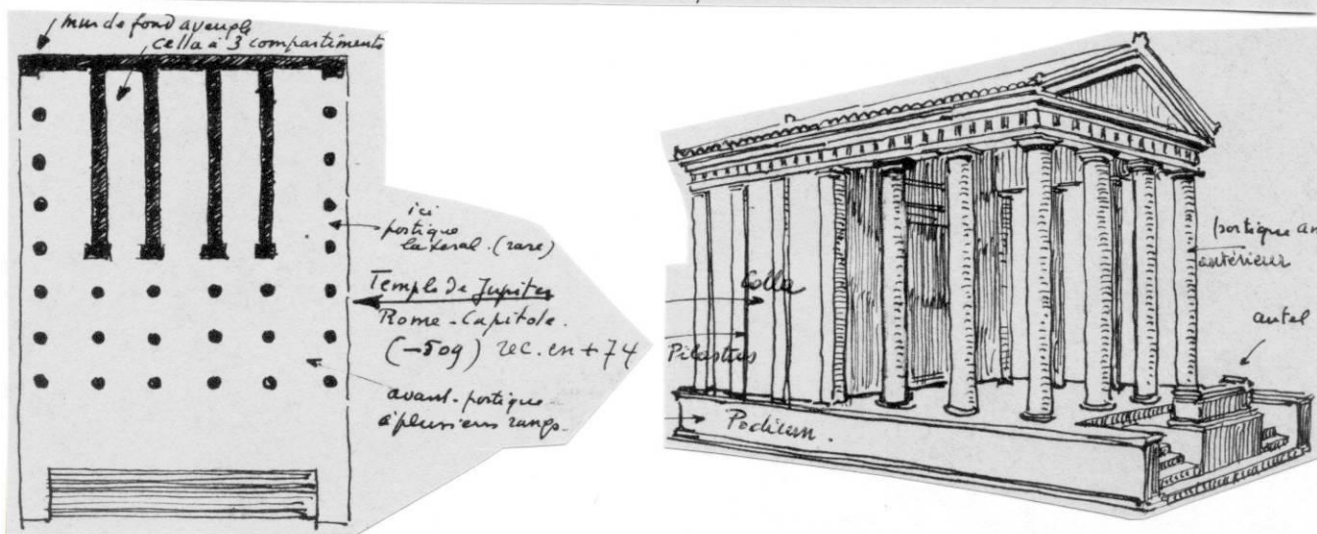 mur de fond aveugle
cella à 3 compartiments
ici
portique
latéral. (rare)
Temple de Jupiter
Rome-Capitole.
(-509) rec. en +74
avant-portique
à plusieurs rangs.
Cella
Pilastres
Podium.
portique an
antérieur
autel